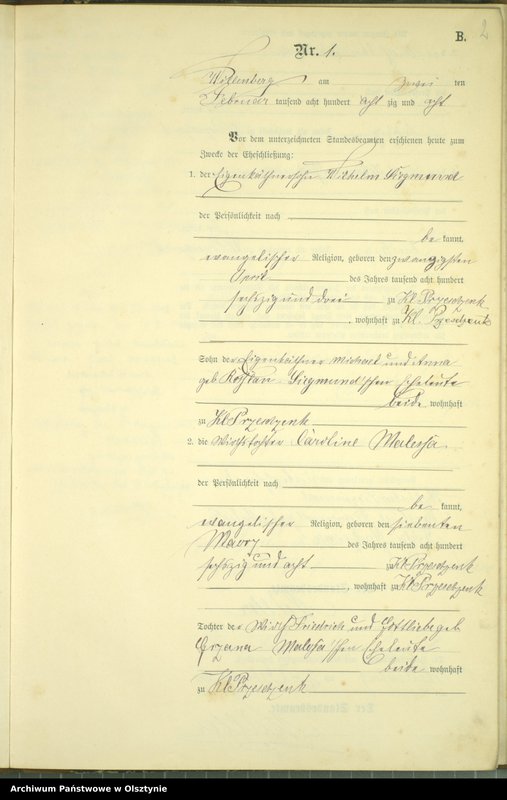 B. 2
Nr. 1.
Willenberg am zwei ten
Februar tausend acht hundert acht zig und acht
Vor dem unterzeichneten Standesbeamten erschienen heute zum
Zwecke der Eheschließung:
1. der Eigenkäthnersohn Wilhelm Sirgmund
der Persönlichkeit nach
be kannt,
evangelischer Religion, geboren den zwanzigsten
April des Jahres tausend acht hundert
sechzig und drei zu Kl. Przesdzenk
, wohnhaft zu Kl. Przesdzenk
Sohn der Eigenkäthner Michael und Anna
geb. Sirgmund'schen Eheleute
beide wohnhaft
zu Kl Przesdzenk
2. die Wirthstochter Caroline Malessa
der Persönlichkeit nach
be kannt,
evangelischer Religion, geboren den siebenten
März des Jahres tausend acht hundert
sechzig und acht zu Kl Przesdzenk
, wohnhaft zu Kl Przesdzenk
Tochter der Wirth Friedrich und Gottliebe geb
Malessa'schen Eheleute
beide wohnhaft
zu Kl Przesdzenk
Archiwum Państwowe w Olsztynie